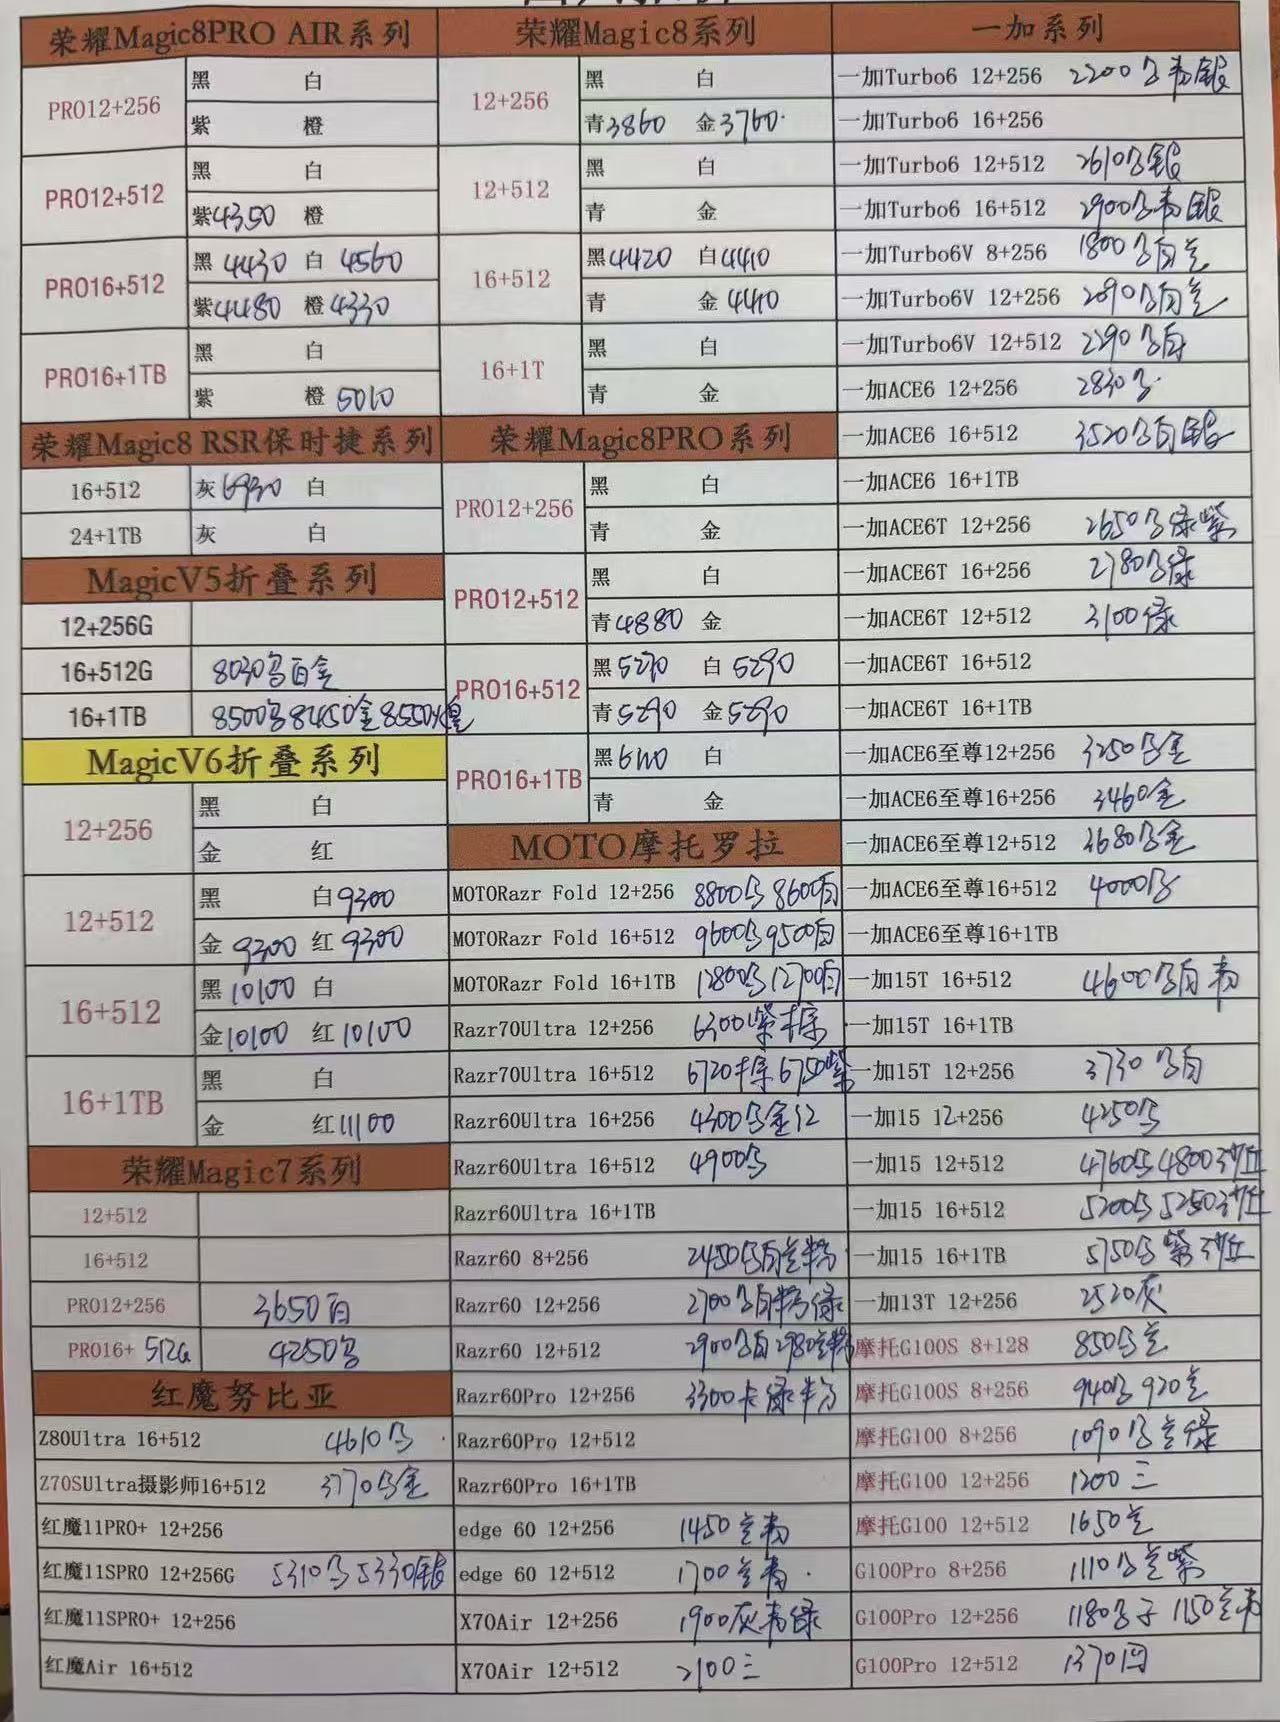 荣耀Magic8PRO AIR系列
PRO12+256
黑 白
紫 橙
PRO12+512
黑 白
紫4350 橙
PRO16+512
黑 4430 白 4560
紫4480 橙4330
PRO16+1TB
黑 白
紫 橙 5010
荣耀Magic8 RSR保时捷系列
16+512 灰6930 白
24+1TB 灰 白
MagicV5折叠系列
12+256G
16+512G 8030白金
16+1TB 8500 8450金8550
MagicV6折叠系列
12+256
黑 白
金 红
12+512
黑 白9300
金 9300 红 9300
16+512
黑10100 白
金10100 红10100
16+1TB
黑 白
金 红11100
荣耀Magic7系列
12+512
16+512
PRO12+256 3650白
PRO16+ 512G 4250
红魔努比亚
Z80Ultra 16+512 4610
Z70SUltra摄影师16+512 3770金
红魔11PRO+ 12+256
红魔11SPRO 12+256G 5310 5330银
红魔11SPRO+ 12+256
红魔Air 16+512
荣耀Magic8系列
12+256
黑 白
青3860 金3760
12+512
黑 白
青 金
16+512
黑4420 白4410
青 金 4410
16+1T
黑 白
青 金
荣耀Magic8PRO系列
PRO12+256
黑 白
青 金
PRO12+512
黑 白
青4880 金
PRO16+512
黑5270 白 5290
青5290 金5290
PRO16+1TB
黑6110 白
青 金
MOTO摩托罗拉
MOTORazr Fold 12+256 8800 8600白
MOTORazr Fold 16+512 9600 9500白
MOTORazr Fold 16+1TB 12800 12700白
Razr70Ultra 12+256 6300紫
Razr70Ultra 16+512 6720 6750紫
Razr60Ultra 16+256 4300金红
Razr60Ultra 16+512 4900
Razr60Ultra 16+1TB
Razr60 8+256 2450白兰粉
Razr60 12+256 2700白粉绿
Razr60 12+512 2900白2980兰粉
Razr60Pro 12+256 3300卡绿
Razr60Pro 12+512
Razr60Pro 16+1TB
edge 60 12+256 1450兰青
edge 60 12+512 1700兰青
X70Air 12+256 1900灰青绿
X70Air 12+512 2100三
一加系列
一加Turbo6 12+256 2200青银
一加Turbo6 16+256
一加Turbo6 12+512 2610银
一加Turbo6 16+512 2900青银
一加Turbo6V 8+256 1800白兰
一加Turbo6V 12+256 2090白兰
一加Turbo6V 12+512 2290白
一加ACE6 12+256 2830
一加ACE6 16+512 3520白银
一加ACE6 16+1TB
一加ACE6T 12+256 2650绿紫
一加ACE6T 16+256 2780绿
一加ACE6T 12+512 3100绿
一加ACE6T 16+512
一加ACE6T 16+1TB
一加ACE6至尊12+256 3250金
一加ACE6至尊16+256 3460金
一加ACE6至尊12+512 3680金
一加ACE6至尊16+512 4000
一加ACE6至尊16+1TB
一加15T 16+512 4600白青
一加15T 16+1TB
一加15T 12+256 3730白
一加15 12+256 4250
一加15 12+512 4760 4800沙丘
一加15 16+512 5200 5250沙丘
一加15 16+1TB 5750紫沙丘
一加13T 12+256 2520灰
摩托G100S 8+128 850兰
摩托G100S 8+256 940 920兰
摩托G100 8+256 1090兰绿
摩托G100 12+256 1200三
摩托G100 12+512 1650兰
G100Pro 8+256 1110兰紫
G100Pro 12+256 1180 1150兰青
G100Pro 12+512 1370四